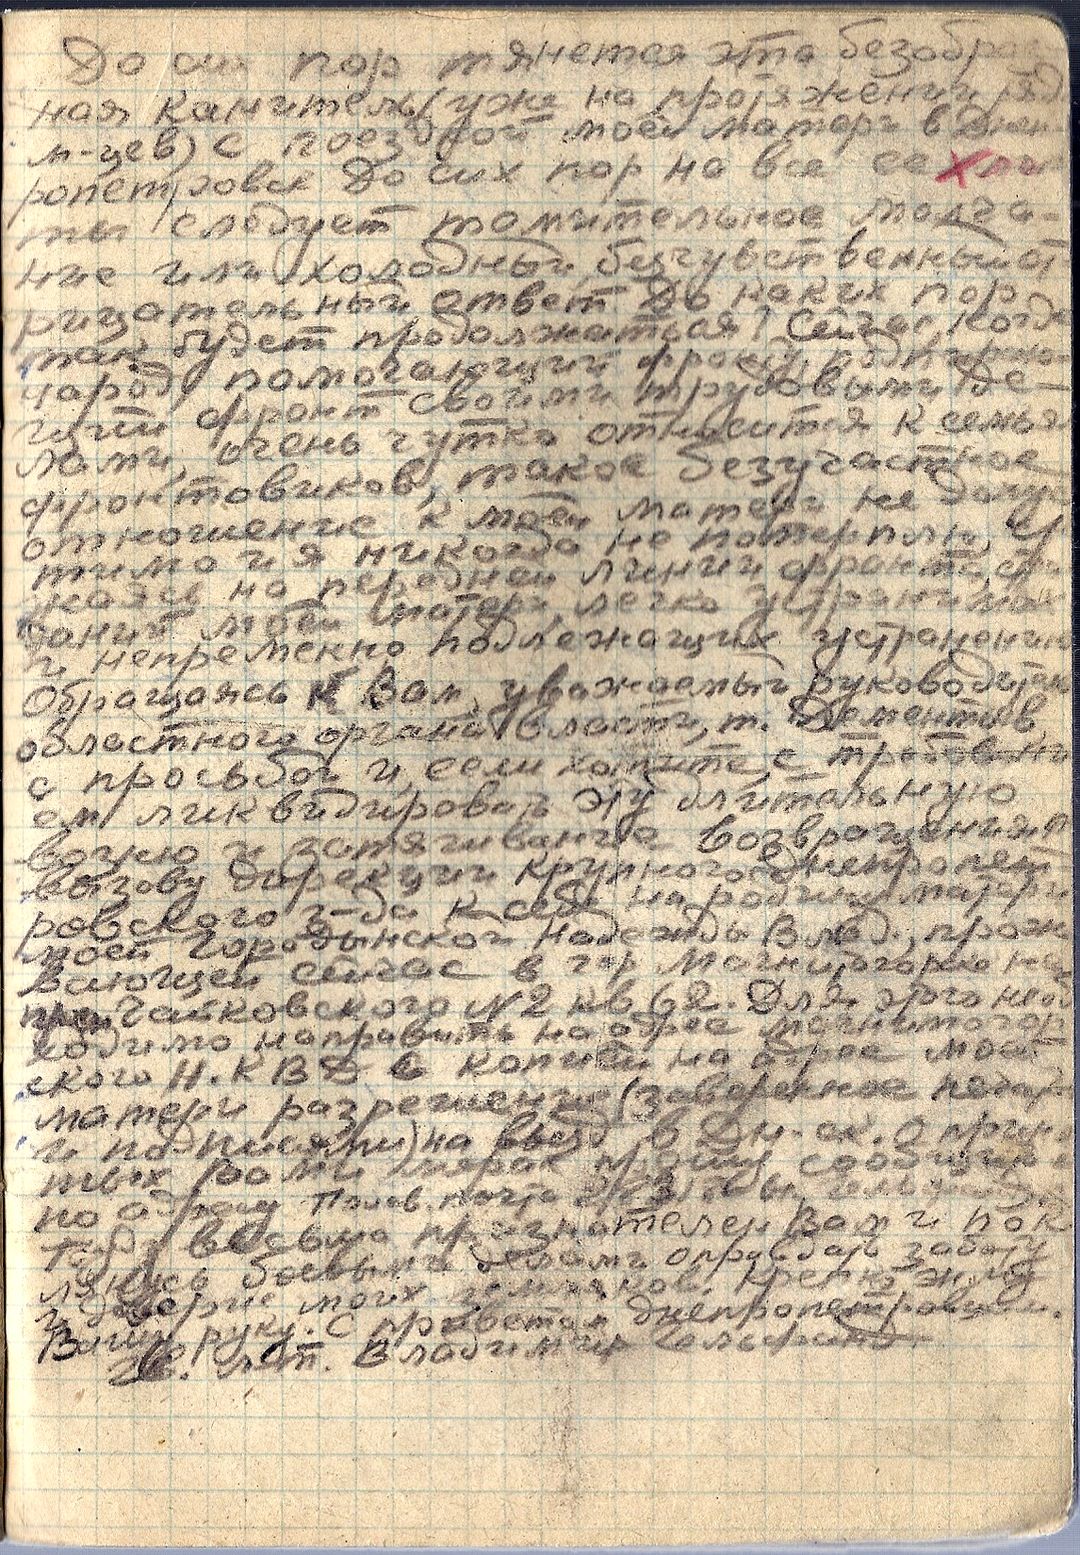 До сих пор тянется эта безобраз-
ная канитель (уже на протяжении ряда
м-цев) с поездкой моей матери в Днеп-
ропетровск До сих пор на все ее хло-
ты следует томительное молча-
ние или холодный, бесчувственный от
рицательный ответ. До каких пор
так будет продолжаться? Сейчас, когда
народ, помогающий фронту,
щий фронт своими трудовыми де-
лами, очень чутко относится к семьям
фронтовиков, такое безучастное
отношение к моей матери не допус
тимо и я никогда не потерплю,
жаясь на передней линии фронта,
даний моей матери легко устранимых
и непременно подлежащих устранению
Обращаясь к Вам, уважаемый руководитель
областного органа власти, т. Дементьев
с просьбой и если хотите с требовани
ем ликвидировать эту длительную
возню и затягивание возвращения п
вызову дирекции крупного днепропет
ровского з-да к себе на родину матери
моей Городынской Надежды Влад., прожи
вающей сейчас в гор Магнитогорке на
Чайковского №2 кв 62. Для этого необ
ходимо направить на адрес магнитогор
ского Н.КВД с копией на адрес моей
матери разрешение (заверенное печат
и подписями) на въезд в Дн-ск. О приня
тых Вами мерах прошу сообщить
по адресу Полев. почта
весьма признателен Вам и пок
лянусь боевыми делами оправдать заботу
и доверие моих земляков. Крепко жму
Вашу руку. С приветом днепропетровцам.
Владимир Гельфанд.